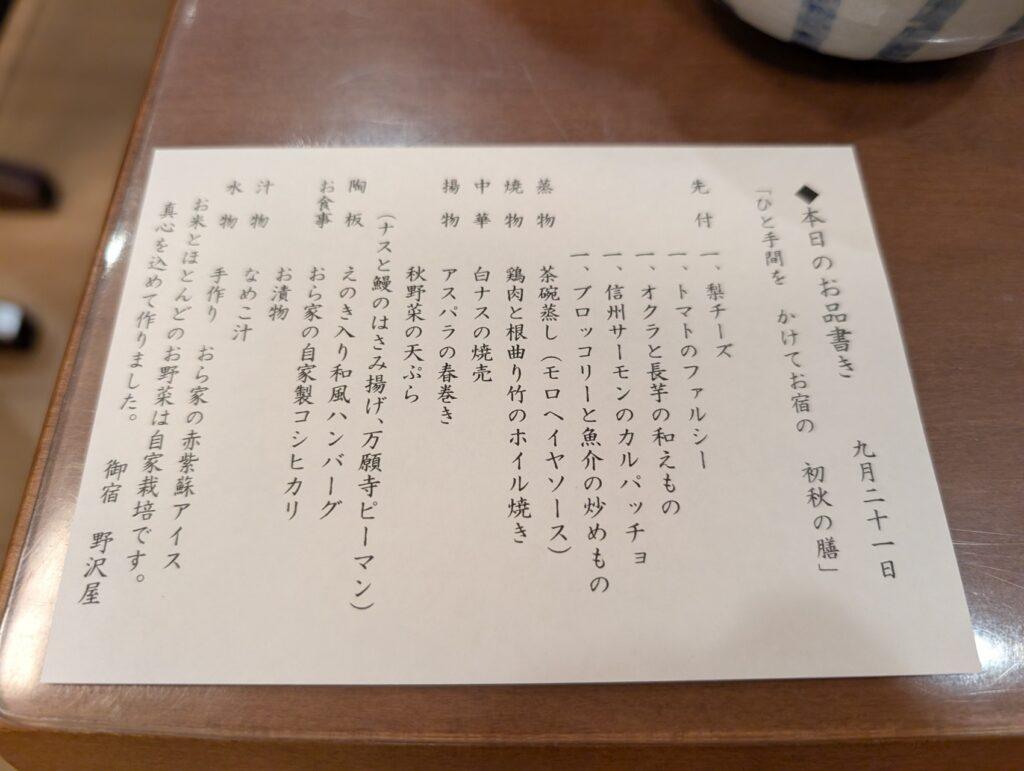 ◆本日のお品書き 九月二十一日
「ひと手間を かけてお宿の 初秋の膳」
先付 一、梨チーズ
一、トマトのファルシー
一、オクラと長芋の和えもの
一、信州サーモンのカルパッチョ
一、ブロッコリーと魚介の炒めもの
蒸物 茶碗蒸し(モロヘイヤソース)
焼物 鶏肉と根曲り竹のホイル焼き
中華 白ナスの焼売
揚物 アスパラの春巻き
秋野菜の天ぷら
(ナスと鰻のはさみ揚げ、万願寺ピーマン)
陶板 えのき入り和風ハンバーグ
お食事 おら家の自家製コシヒカリ
お漬物
汁物 なめこ汁
水物 手作り おら家の赤紫蘇アイス
お米とほとんどのお野菜は自家栽培です。
真心を込めて作りました。
御宿 野沢屋